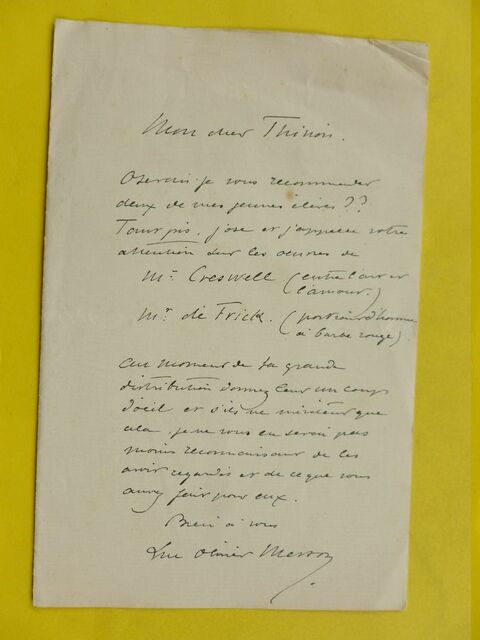 Mon cher Thirion.
Oserais-je vous recommander
deux de mes jeunes élèves ??
Tant pis, j'ose et j'appelle votre
attention sur les œuvres de
Mr. Creswell (entre l'art et
l'amour.)
Mr. de Frick. (portrait d'homme
à barbe rouge).
au moment de la grande
distribution donnez leur un coup
d'œil et s'ils ne méritent que
cela, je ne vous en serai pas
moins reconnaissant de les
avoir regardés et de ce que vous
aurez fait pour eux.
Bien à vous
Luc Olivier Merson